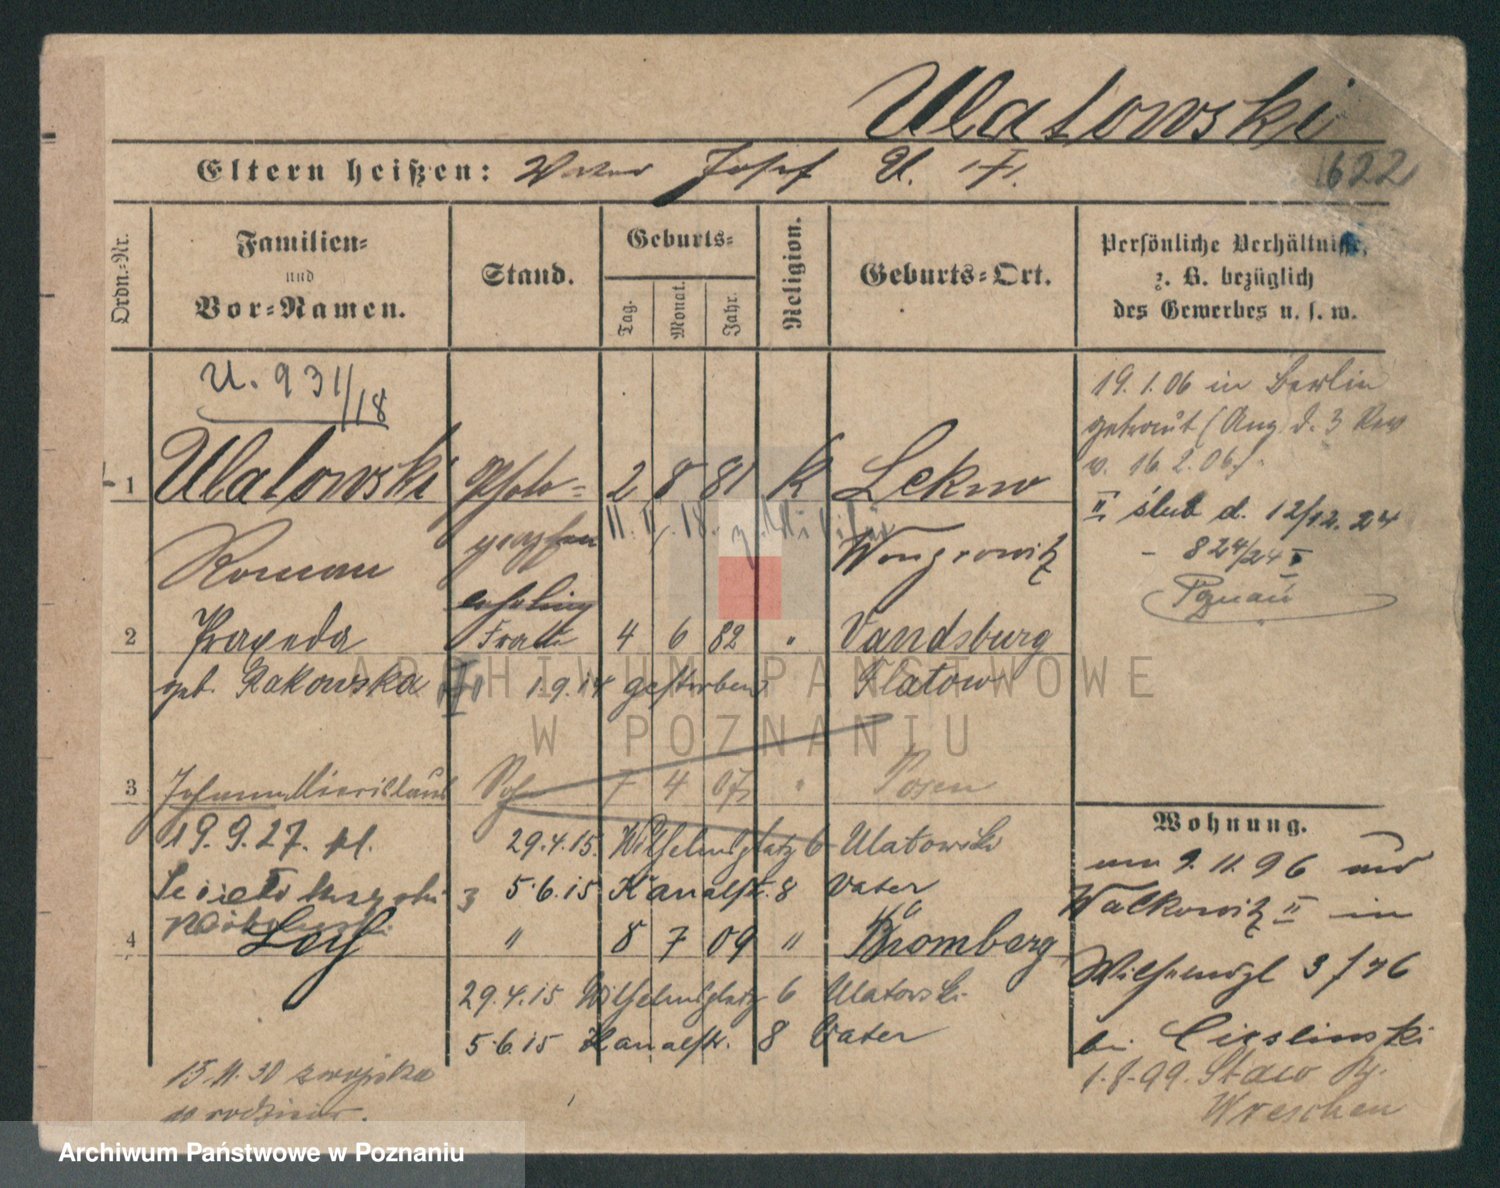 Ulatowski
Eltern heißen: Vater Josef U. 
1622
Ordn.-Nr.
Familien-
und
Vor-Namen.
Stand.
Geburts-
Tag.
Monat.
Jahr.
Religion.
Geburts-Ort.
Persönliche Verhältnisse,
z. B. bezüglich
des Gewerbes u. s. w.
U. 931/18
1 Ulatowski Photo- 2 8 81 K Lekno
Roman graphen Wongrowitz
lehrling
2 Praxeda Frau 4 6 82 " Vandsburg
geb. Rakowska 1.9.14 gestorben Flatow
3 Johann Miecislaus Sohn 7 4 07 " Posen
19.9.27. pl. 29.4.15. Wilhelmsplatz 6 Ulatowski
3 5.6.15 Kanalstr. 8 Vater
4 " 8 7 09 " Bromberg
29.4.15 Wilhelmsplatz 6 Ulatowski
5.6.15 Kanalstr. 8 Vater
15.11.30
19.1.06 in Berlin
getraut (Ang. d. 3 Rev
v. 16.2.06).
II ślub d. 12/12.24
- 824/24 I
Poznań
Wohnung.
um 9.11.96 und
Walkowitz II in
Wilhelmspl 3
bei Cieslinski
1.8.99. Staw Kr.
Wreschen
ARCHIWUM PAŃSTWOWE
W POZNANIU
Archiwum Państwowe w Poznaniu